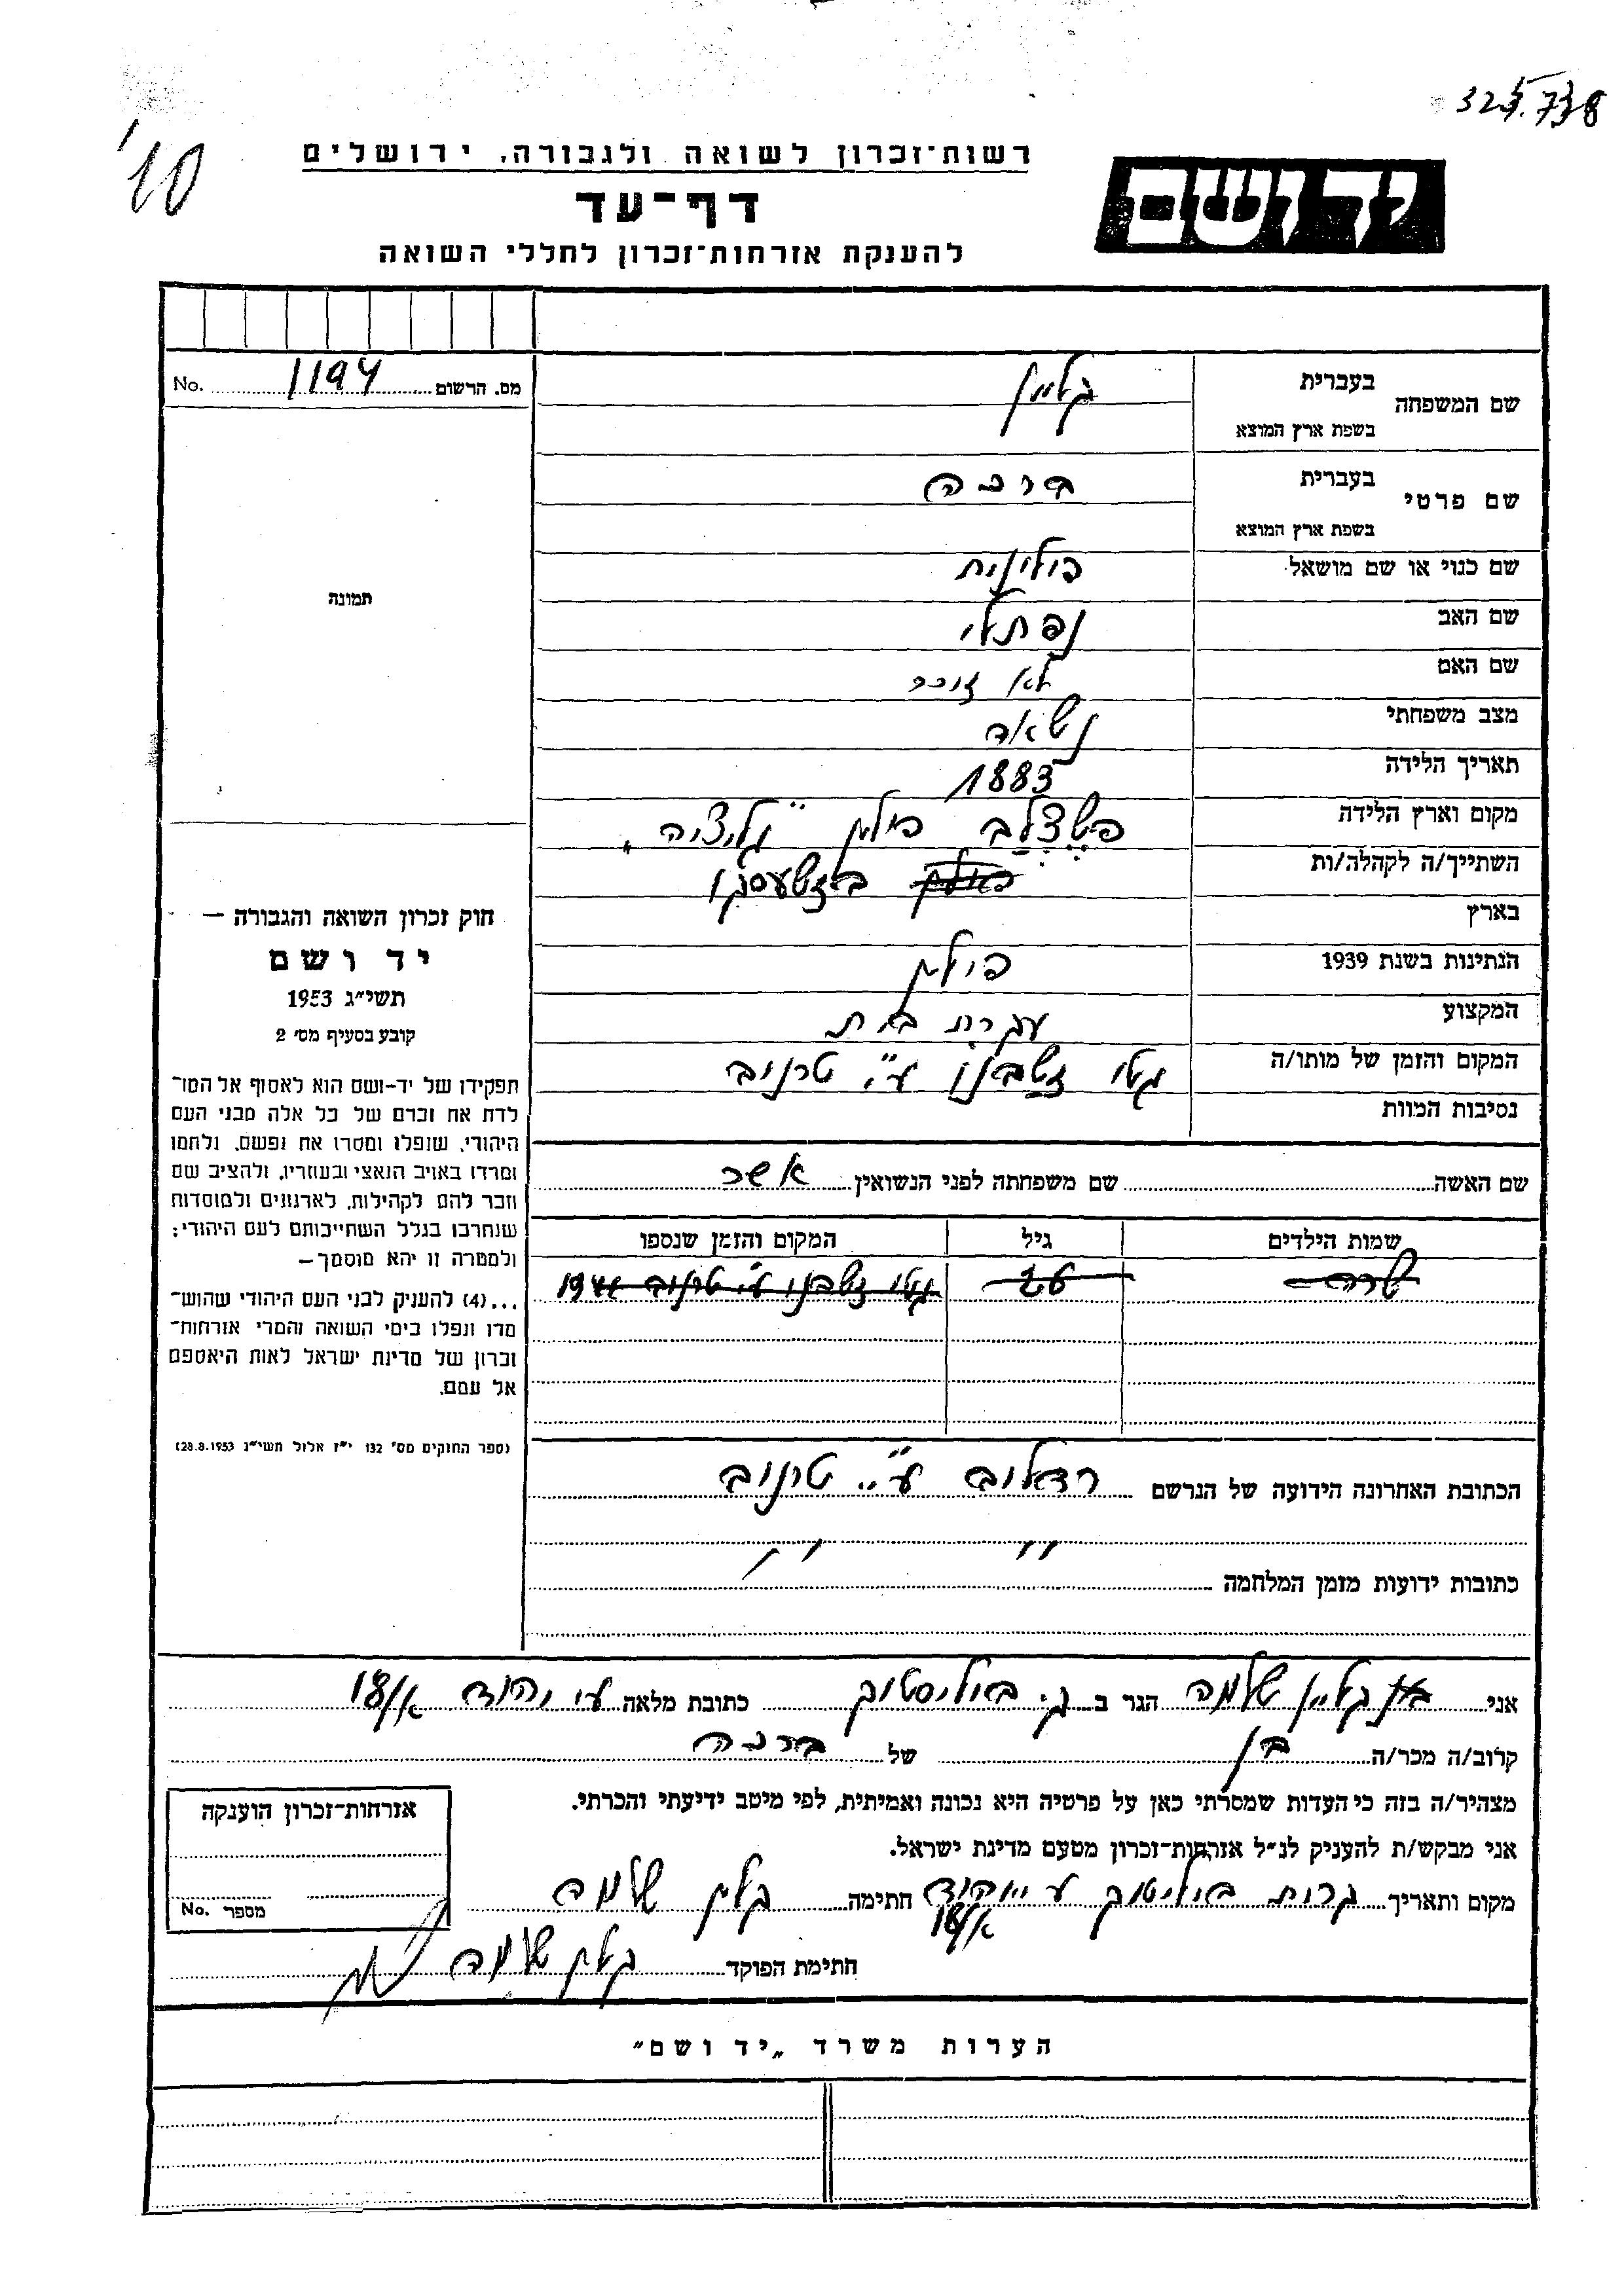 325.738
10'
רשות־זכרון לשואה ולגבורה, ירושלים
ידושם
דף־עד
להענקת אזרחות־זכרון לחללי השואה
מס. הרשום 1194 No.
תמונה
שם המשפחה בעברית
בשפת ארץ המוצא
שם פרטי בעברית ברכה
בשפת ארץ המוצא
שם כנוי או שם מושאל
שם האב נפתלי
שם האם לא זוכר
מצב משפחתי
תאריך הלידה 1883
מקום וארץ הלידה פולין "גליציה"
השתייך/ה לקהלה/ות
בארץ
הנתינות בשנת 1939 פולין
המקצוע עקרת בית
המקום והזמן של מותו/ה גטו זשבנו ע"י טרנוב
נסיבות המוות
חוק זכרון השואה והגבורה —
יד ושם
תשי"ג 1953
קובע בסעיף מס' 2
תפקידו של יד-ושם הוא לאסוף אל המו־
לדת את זכרם של כל אלה מבני העם
היהודי, שנפלו ומסרו את נפשם, נלחמו
ומרדו באויב הנאצי ובעוזריו, ולהציב שם
וזכר להם לקהילות, לארגונים ולמוסדות
שנחרבו בגלל השתייכותם לעם היהודי;
ולמטרה זו יהא מוסמך—
...(4) להעניק לבני העם היהודי שהוש־
מדו ונפלו בימי השואה והמרי אזרחות־
זכרון של מדינת ישראל לאות היאספם
אל עמם.
(ספר החוקים מס' 132 י"ז אלול תשי"ג 28.8.1953)
שם האשה שם משפחתה לפני הנשואין אשר
שמות הילדים גיל המקום והזמן שנספו
שרה גטו זשבנו ע"י טרנוב 1941
הכתובת האחרונה הידועה של הנרשם רדלוב ע"י טרנוב
כתובות ידועות מזמן המלחמה " "
אני קליין שלמה הגר ב ק. ביליסטוק כתובת מלאה ע"י יהוד 18/א
קרוב/ה מכר/ה בן של ברכה
מצהיר/ה בזה כי העדות שמסרתי כאן על פרטיה היא נכונה ואמיתית, לפי מיטב ידיעתי והכרתי.
אני מבקש/ת להעניק לנ"ל אזרחות־זכרון מטעם מדינת ישראל.
מקום ותאריך קרית ביליסטוק ע"י יהוד 18/א חתימה קלין שלמה
חתימת הפוקד קלין שלמה
אזרחות־זכרון הוענקה
מספר No.
הערות משרד „יד ושם"